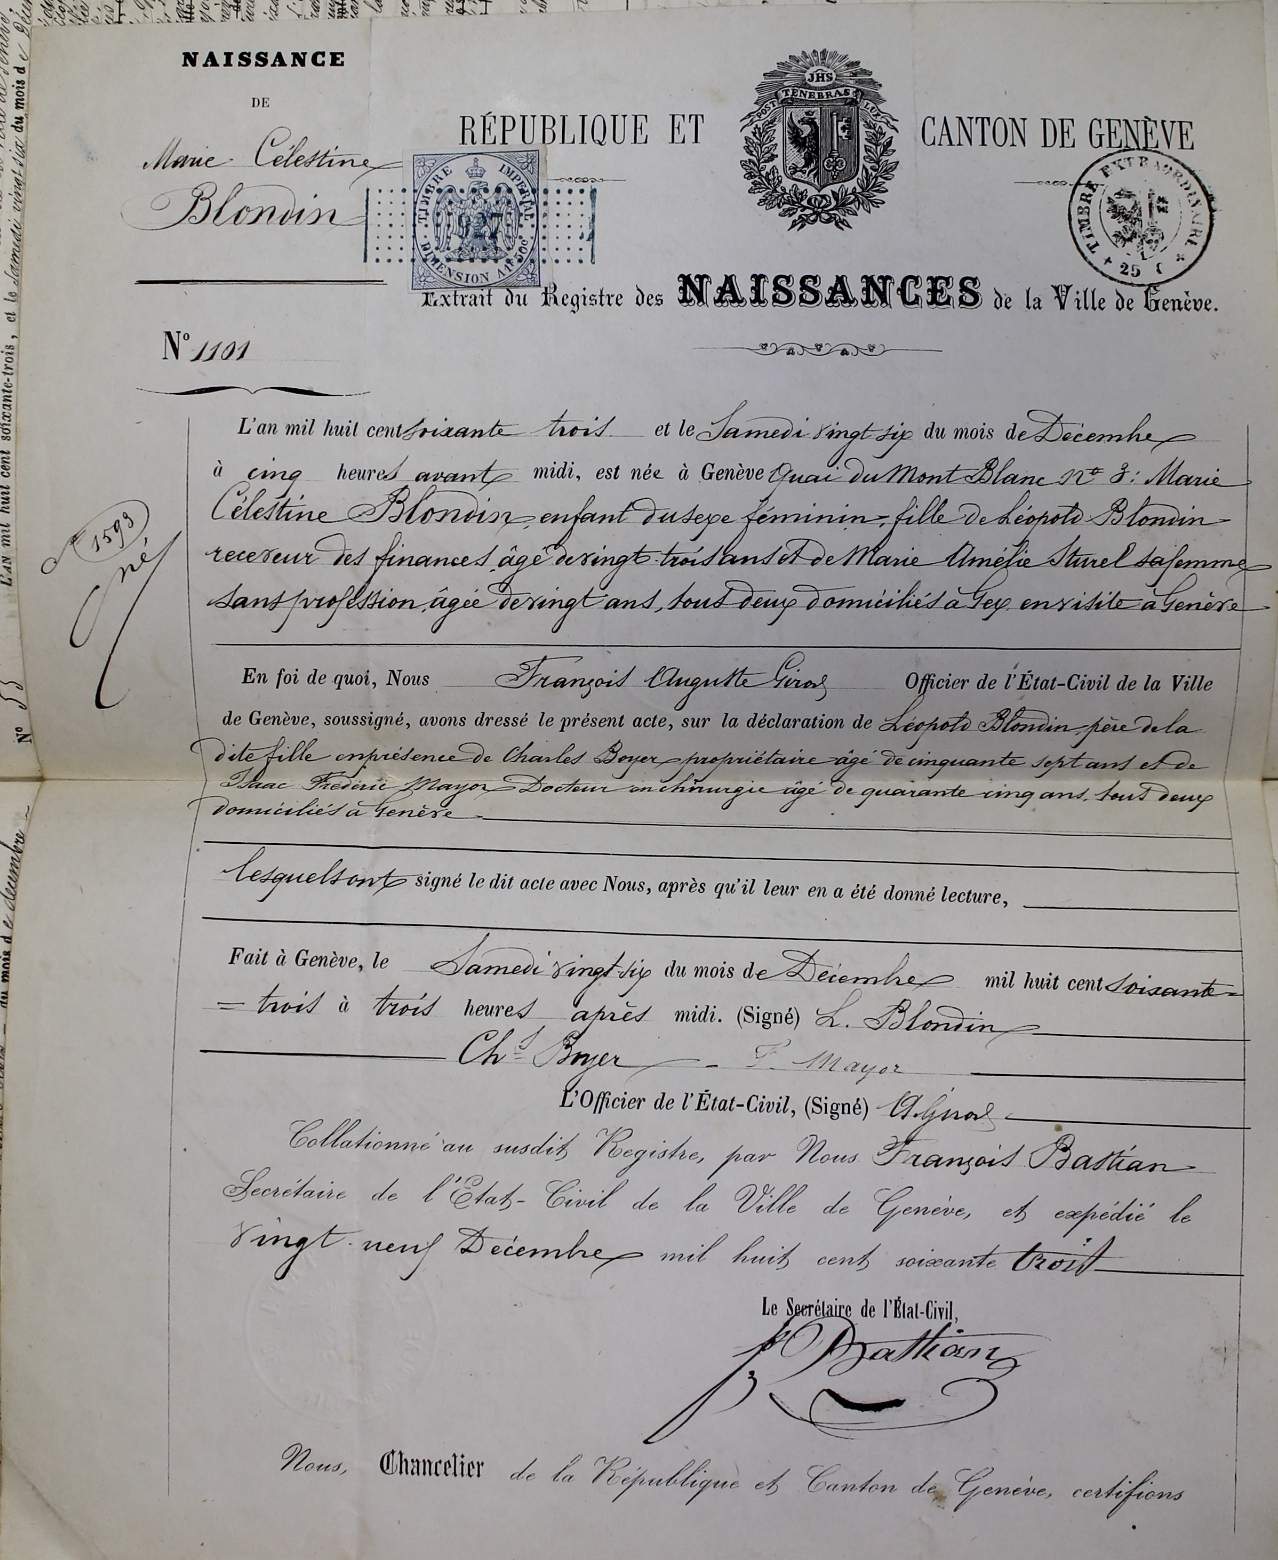 NAISSANCE
DE
Marie Célestine
Blondin
JHS
POST TENEBRAS LUX
RÉPUBLIQUE ET CANTON DE GENÈVE
TIMBRE IMPÉRIAL
927
DIMENSION A 1F 50C
TIMBRE EXTRAORDINAIRE
25 C
Extrait du Registre des NAISSANCES de la Ville de Genève.
No 1101
L'an mil huit cent soixante trois et le Samedi vingt six du mois de Décembre
à cinq heures avant midi, est née à Genève Quai du Mont Blanc No 3: Marie
Célestine Blondin, enfant du sexe féminin, fille de Léopold Blondin
receveur des finances, âgé de vingt-trois ans et de Marie Amélie Sturel sa femme
sans profession, âgée de vingt ans, tous deux domiciliés à Gex, en visite à Genève
1593
né
En foi de quoi, Nous François Auguste Girod Officier de l'État-Civil de la Ville
de Genève, soussigné, avons dressé le présent acte, sur la déclaration de Léopold Blondin père de la
dite fille en présence de Charles Boyer propriétaire âgé de cinquante sept ans et de
Isaac Frédéric Mayor Docteur en chirurgie âgé de quarante cinq ans, tous deux
domiciliés à Genève
lesquels ont signé le dit acte avec Nous, après qu'il leur en a été donné lecture,
Fait à Genève, le Samedi vingt-six du mois de Décembre mil huit cent soixante=
=trois à trois heures après midi. (Signé) L. Blondin
Chs Boyer - F. Mayor
L'Officier de l'État-Civil, (Signé) A. Girod
Collationné au susdit Registre, par Nous François Bastian
Secrétaire de l'Etat-Civil de la Ville de Genève, et expédié le
vingt-neuf Décembre mil huit cent soixante trois
Le Secrétaire de l'État-Civil,
F Bastian
Nous, Chancelier de la République et Canton de Genève, certifions
L'AN mil huit cent soixante-trois, et le Samedi vingt six du mois d
No 53
du mois de décembre